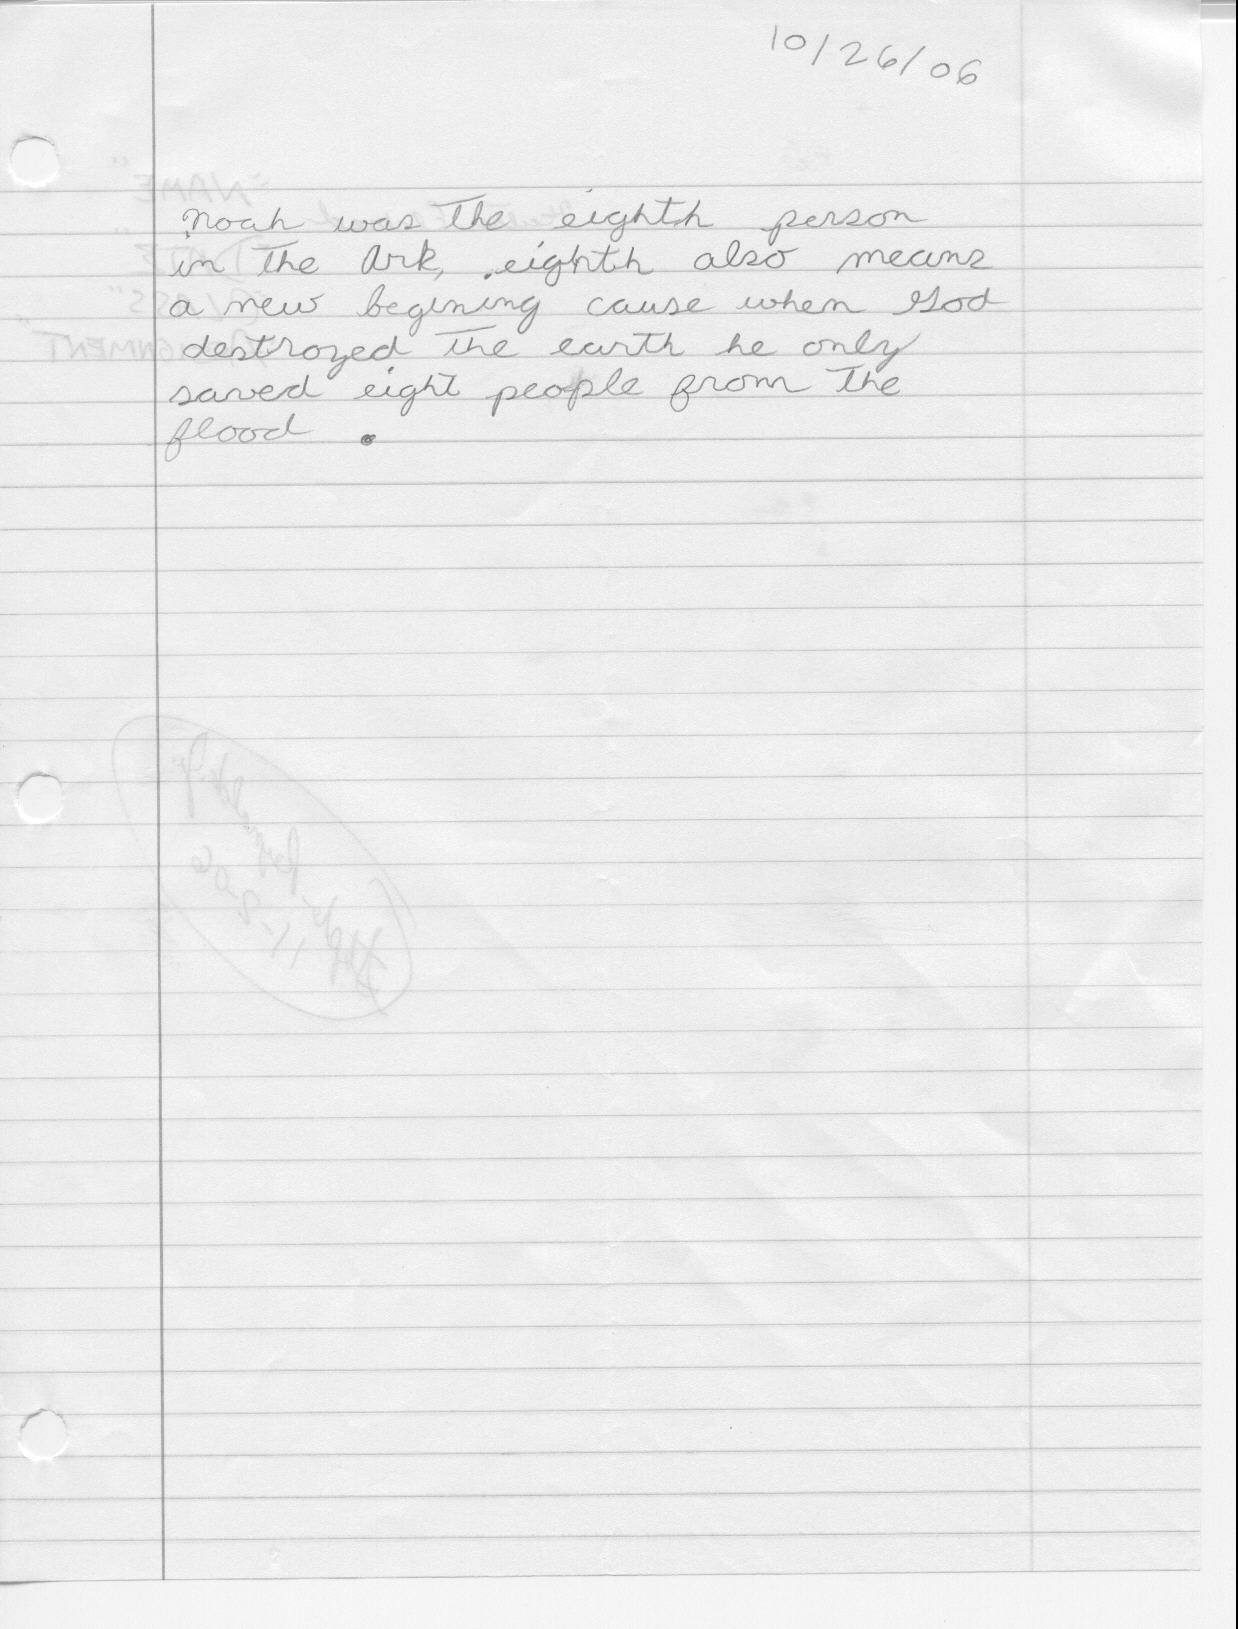 10/26/06
Noah was the eighth person
in the Ark, eighth also means
a new begining cause when God
destroyed the earth he only
saved eight people from the
flood.
"NAME"